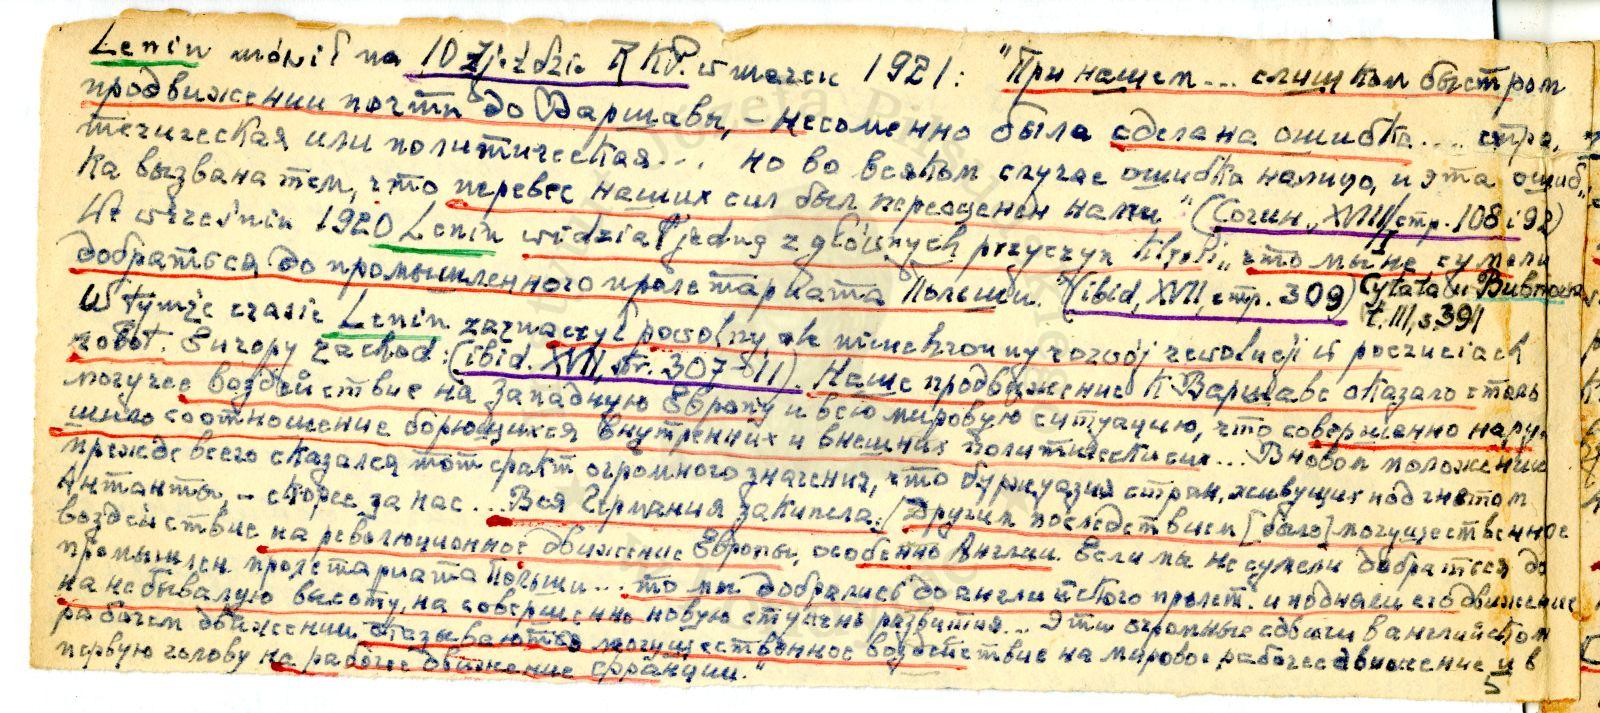 Lenin mówił na 10 Zjeździe RKP. w marcu 1921: "При нашем... слишком быстром
продвижении почти до Варшавы, – несомненно была сделана ошибка.... стра,
тегическая или политическая... но во всяком случае ошибка налицо, и эта ошиб,,
ка вызвана тем, что перевес наших сил был переоценен нами" (Сочин., XVIII/I стр. 108 i 92)
We wrześniu 1920 Lenin widział jedną z głównych przyczyn klęski „что мы не сумели
добраться до промышленного пролетариата Польши." (ibid, XVII, стр. 309) Cytata u Бубнова
t. III, s. 391
W tymże czasie Lenin zaznaczył powolny ale niechronny rozwój rewolucji w poczuciach
robot. Europy zachod: (ibid. XVII, str. 307-11). Наше продвижение к Варшаве оказало столь
могучее воздействие на Западную Европу и всю мировую ситуацию, что совершенно нару,
шило соотношение борющихся внутренних и внешних политических сил... В новом положении
прежде всего сказался тот факт огромного значения, что буржуазия стран, живущих под гнетом
Антанты, – скорее за нас... Вся Германия закипела. Другим последствием [было] могущественное
воздействие на революционное движение Европы, особенно Англии. Если мы не сумели добраться до
промышлен пролетариата Польши... то мы добрались до английского пролет. и подняли его движение
на небывалую высоту, на совершенно новую ступень развития... Эти огромные сдвиги в английском
рабочем движении оказываются могущественное воздействие на мировое рабочее движение и в
первую голову на рабочее движение Франции."
5